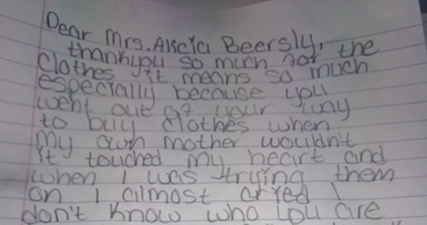 Dear Mrs. Alicia Beersly,
thankyou so much for the
clothes it means so much
especially because you
went out of your way
to buy clothes when
My own mother wouldn't
it touched my heart and
when I was trying them
on I almost cried I
don't know who you are